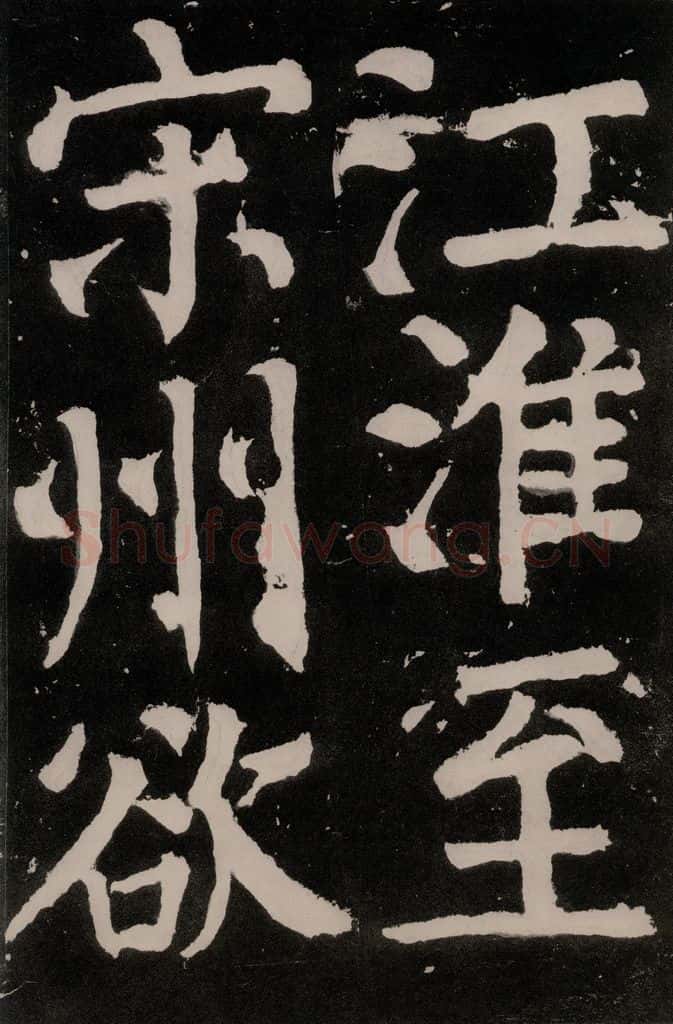 江淮至
宋州欲
Shufawang.CN